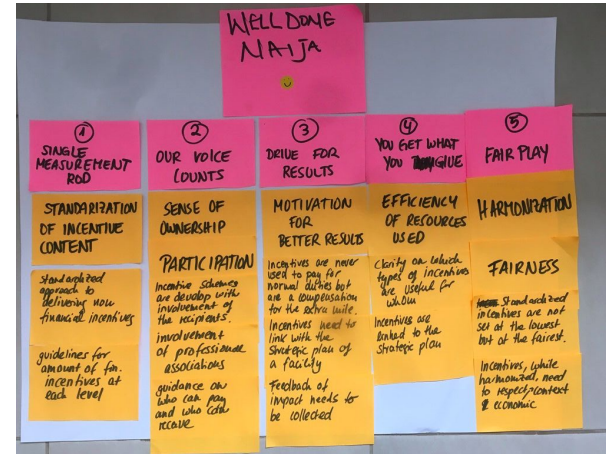 WELL DONE
NAIJA
1
SINGLE
MEASUREMENT
ROD
STANDARIZATION
OF INCENTIVE
CONTENT
Standardized
approach to
delivering non
financial incentives
guidelines for
amount of fin.
incentives at
each level
2
OUR VOICE
COUNTS
SENSE OF
OWNERSHIP
PARTICIPATION
Incentive schemes
are develop with
involvement of
the recipients.
involvement
of professional
associations
guidance on
who can pay
and who can
receive
3
DRIVE FOR
RESULTS
MOTIVATION
FOR
BETTER RESULTS
Incentives are never
used to pay for
normal duties but
are a compensation
for the extra mile.
Incentives need to
link with the
Strategic plan of
a facility
Feedback of
impact needs to
be collected
4
YOU GET WHAT
YOU GIVE
EFFICIENCY
OF RESOURCES
USED
Clarity on which
types of incentives
are useful for
whom
Incentives are
linked to the
strategic plan
5
FAIR PLAY
HARMONIZATION
FAIRNESS
Standardized
incentives are not
set at the lowest
but at the fairest.
Incentives, while
harmonized, need
to respect context
& economic